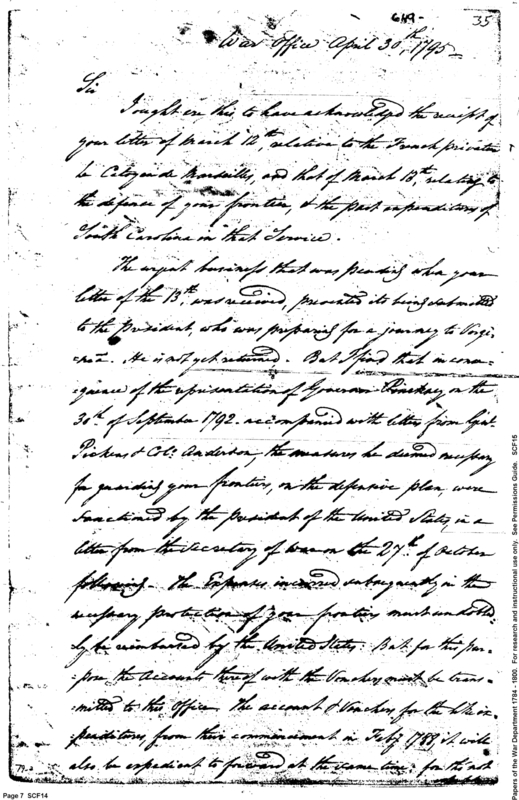 649- 35
War Office April 30th, 1795-
Sir
I ought ere this, to have acknowledged the receipt of
your letter of March 12th, relative to the French privateer
la Citoyen de Marseilles, and that of March 13th, relating to
the defence of your frontier, & the past expenditures of
South Carolina in that Service.
The urgent business that was pending when your
letter of the 13th, was received, prevented its being submitted
to the President, who was preparing for a journey to Virgi-
nia. He is not yet returned. But I find that in conse-
quence of the representation of Governor Pinckney on the
30th of September 1792. accompanied with letters from Genl.
Pickens & Colo. Anderson, the measures he deemed necessary
for guarding your frontiers, on the defensive plan, were
sanctioned by the President of the United States, in a
letter from the Secretary of War on the 27th of October
following. The Expenses incurred subsequently in the
necessary protection of your frontiers must undoubted-
ly be reimbursed by the United States. But for this pur-
pose the accounts thereof with the Vouchers must be trans-
mitted to this Office. The account & Vouchers for the like ex-
penditures, from their commencement in Feby. 1788, it will
also be expedient to forward at the same time: for the
Page 7 SCF14
Papers of the War Department 1784 - 1800. For research and instructional use only. See Permissions Guide. SCF15